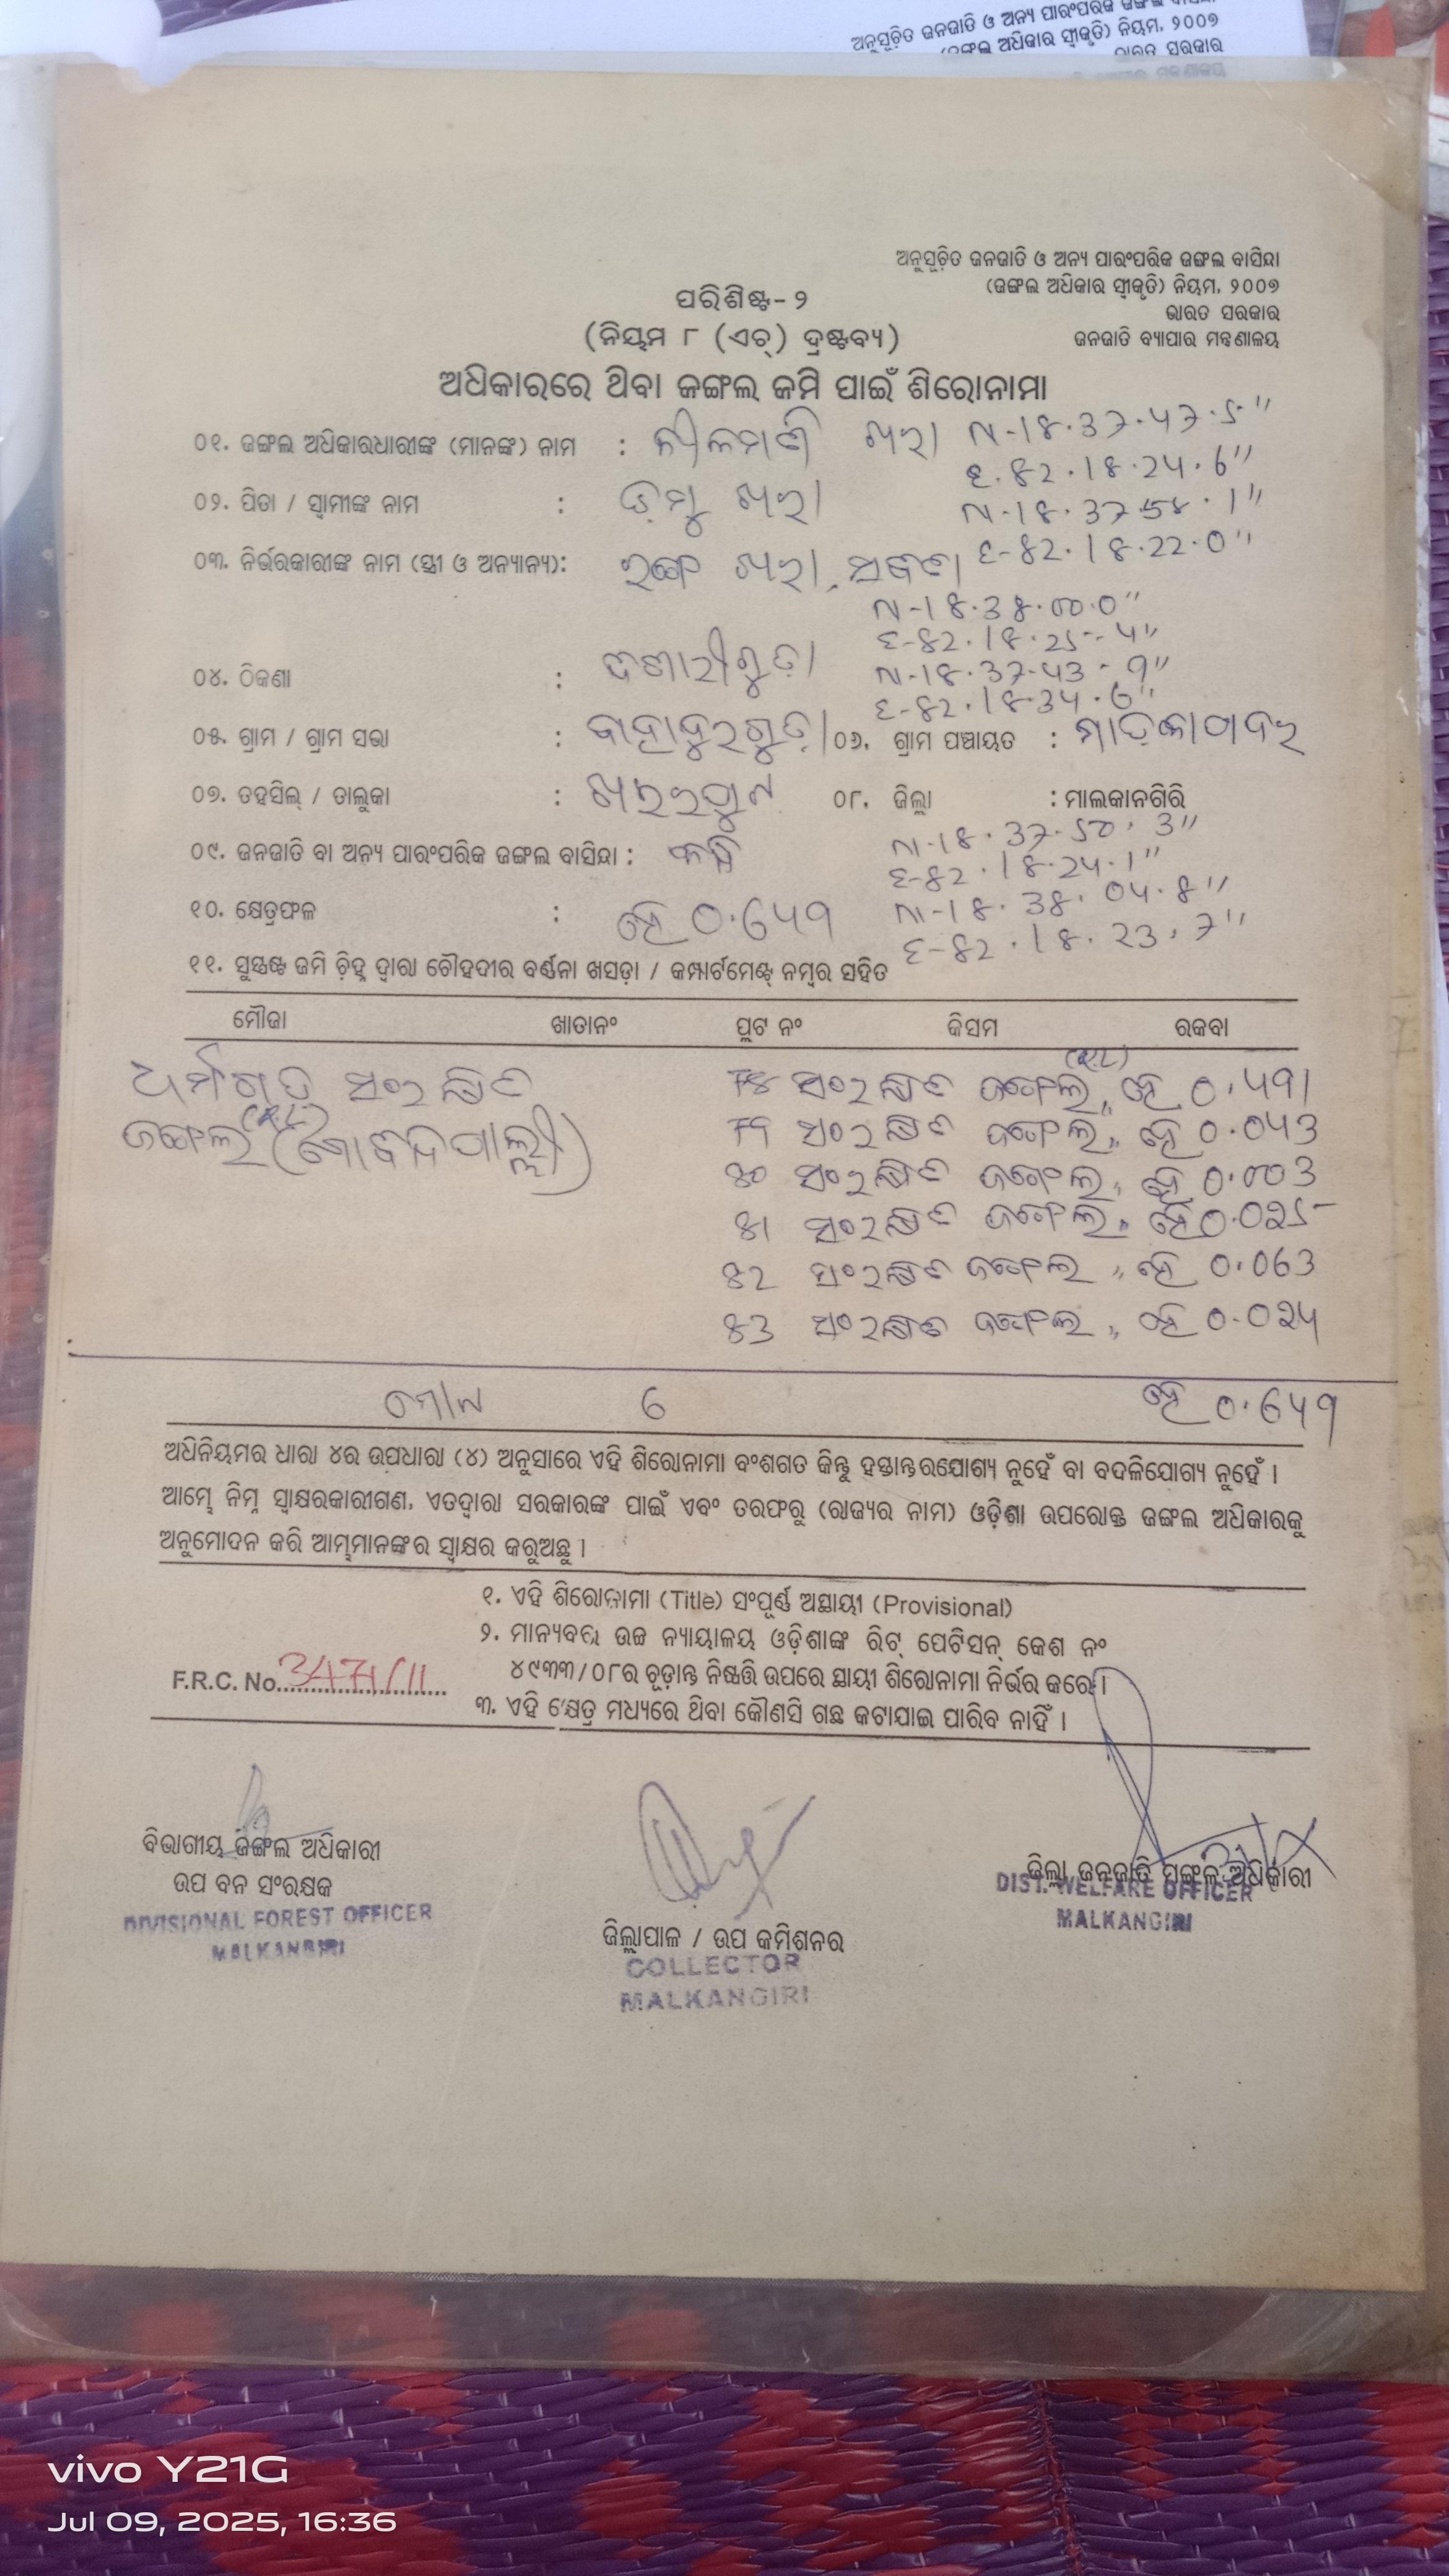 ଅନୁସୂଚିତ ଜନଜାତି ଓ ଅନ୍ୟ ପାରଂପରିକ ଜଙ୍ଗଲ ବାସିନ୍ଦା
(ଜଙ୍ଗଲ ଅଧିକାର ସ୍ୱୀକୃତି) ନିୟମ, ୨୦୦୭
ଭାରତ ସରକାର
ଅନୁସୂଚିତ ଜନଜାତି ଓ ଅନ୍ୟ ପାରଂପରିକ ଜଙ୍ଗଲ ବାସିନ୍ଦା
(ଜଙ୍ଗଲ ଅଧିକାର ସ୍ୱୀକୃତି) ନିୟମ, ୨୦୦୭
ଭାରତ ସରକାର
ଜନଜାତି ବ୍ୟାପାର ମନ୍ତ୍ରଣାଳୟ
ପରିଶିଷ୍ଟ- ୨
(ନିୟମ ୮ (ଏଚ୍) ଦ୍ରଷ୍ଟବ୍ୟ)
ଅଧିକାରରେ ଥିବା ଜଙ୍ଗଲ ଜମି ପାଇଁ ଶିରୋନାମା
୦୧. ଜଙ୍ଗଲ ଅଧିକାରଧାରୀଙ୍କ (ମାନଙ୍କ) ନାମ : ନୀଳମଣି ଖରା N-18.37.47.5"
E-82.18.24.6"
୦୨. ପିତା / ସ୍ୱାମୀଙ୍କ ନାମ : ଡମ୍ବୁ ଖରା N-18.37.58.1"
୦୩. ନିର୍ଭରକାରୀଙ୍କ ନାମ (ସ୍ତ୍ରୀ ଓ ଅନ୍ୟାନ୍ୟ): ଖରା, E-82.18.22.0"
N-18.38.00.0"
E-82.18.25.4"
୦୪. ଠିକଣା : N-18.37.43.9"
E-82.18.34.6"
୦୫. ଗ୍ରାମ / ଗ୍ରାମ ସଭା : ବାହାଦୁରଗୁଡ଼ା ୦୬. ଗ୍ରାମ ପଞ୍ଚାୟତ :
୦୭. ତହସିଲ୍ / ତାଲୁକା : ଖଇରପୁଟ ୦୮. ଜିଲ୍ଲା : ମାଲକାନଗିରି
N-18.37.50.3"
୦୯. ଜନଜାତି ବା ଅନ୍ୟ ପାରଂପରିକ ଜଙ୍ଗଲ ବାସିନ୍ଦା : E-82.18.24.1"
୧୦. କ୍ଷେତ୍ରଫଳ : ହେ 0.649 N-18.38.04.8"
E-82.18.23.7"
୧୧. ସୁସ୍ପଷ୍ଟ ଜମି ଚିହ୍ନ ଦ୍ୱାରା ଚୌହଦୀର ବର୍ଣ୍ଣନା ଖସଡ଼ା / କମ୍ପାର୍ଟମେଣ୍ଟ ନମ୍ବର ସହିତ
ମୌଜା ଖାତାନଂ ପ୍ଲଟ ନଂ କିସମ ରକବା
ସଂରକ୍ଷିତ 78 ସଂରକ୍ଷିତ ଜଙ୍ଗଲ, ହେ 0.491
ଜଙ୍ଗଲ (ଗୋବିନ୍ଦପାଲ୍ଲୀ) 79 ସଂରକ୍ଷିତ ଜଙ୍ଗଲ, ହେ 0.043
80 ସଂରକ୍ଷିତ ଜଙ୍ଗଲ, ହେ 0.003
81 ସଂରକ୍ଷିତ ଜଙ୍ଗଲ, ହେ 0.025
82 ସଂରକ୍ଷିତ ଜଙ୍ଗଲ, ହେ 0.063
83 ସଂରକ୍ଷିତ ଜଙ୍ଗଲ, ହେ 0.024
ମୋଟ 6 ହେ 0.649
ଅଧିନିୟମର ଧାରା ୪ର ଉପଧାରା (୪) ଅନୁସାରେ ଏହି ଶିରୋନାମା ବଂଶଗତ କିନ୍ତୁ ହସ୍ତାନ୍ତରଯୋଗ୍ୟ ନୁହେଁ ବା ବଦଳିଯୋଗ୍ୟ ନୁହେଁ ।
ଆମ୍ଭେ ନିମ୍ନ ସ୍ୱାକ୍ଷରକାରୀଗଣ, ଏତଦ୍ୱାରା ସରକାରଙ୍କ ପାଇଁ ଏବଂ ତରଫରୁ (ରାଜ୍ୟର ନାମ) ଓଡ଼ିଶା ଉପରୋକ୍ତ ଜଙ୍ଗଲ ଅଧିକାରକୁ
ଅନୁମୋଦନ କରି ଆମ୍ଭମାନଙ୍କର ସ୍ୱାକ୍ଷର କରୁଅଛୁ ।
୧. ଏହି ଶିରୋନାମା (Title) ସଂପୂର୍ଣ୍ଣ ଅସ୍ଥାୟୀ (Provisional)
୨. ମାନ୍ୟବର ଉଚ୍ଚ ନ୍ୟାୟାଳୟ ଓଡ଼ିଶାଙ୍କ ରିଟ୍ ପେଟିସନ୍ କେଶ ନଂ
୪୯୩୩/୦୮ର ଚୂଡ଼ାନ୍ତ ନିଷ୍ପତ୍ତି ଉପରେ ସ୍ଥାୟୀ ଶିରୋନାମା ନିର୍ଭର କରେ ।
F.R.C. No. 3471/11
୩. ଏହି କ୍ଷେତ୍ର ମଧ୍ୟରେ ଥିବା କୌଣସି ଗଛ କଟାଯାଇ ପାରିବ ନାହିଁ ।
ବିଭାଗୀୟ ଜଙ୍ଗଲ ଅଧିକାରୀ
ଉପ ବନ ସଂରକ୍ଷକ
DIVISIONAL FOREST OFFICER
MALKANGIRI
ଜିଲ୍ଲାପାଳ / ଉପ କମିଶନର
COLLECTOR
MALKANGIRI
ଜିଲ୍ଲା ଜନଜାତି ମଙ୍ଗଳ ଅଧିକାରୀ
DIST. WELFARE OFFICER
MALKANGIRI
vivo Y21G
Jul 09, 2025, 16:36